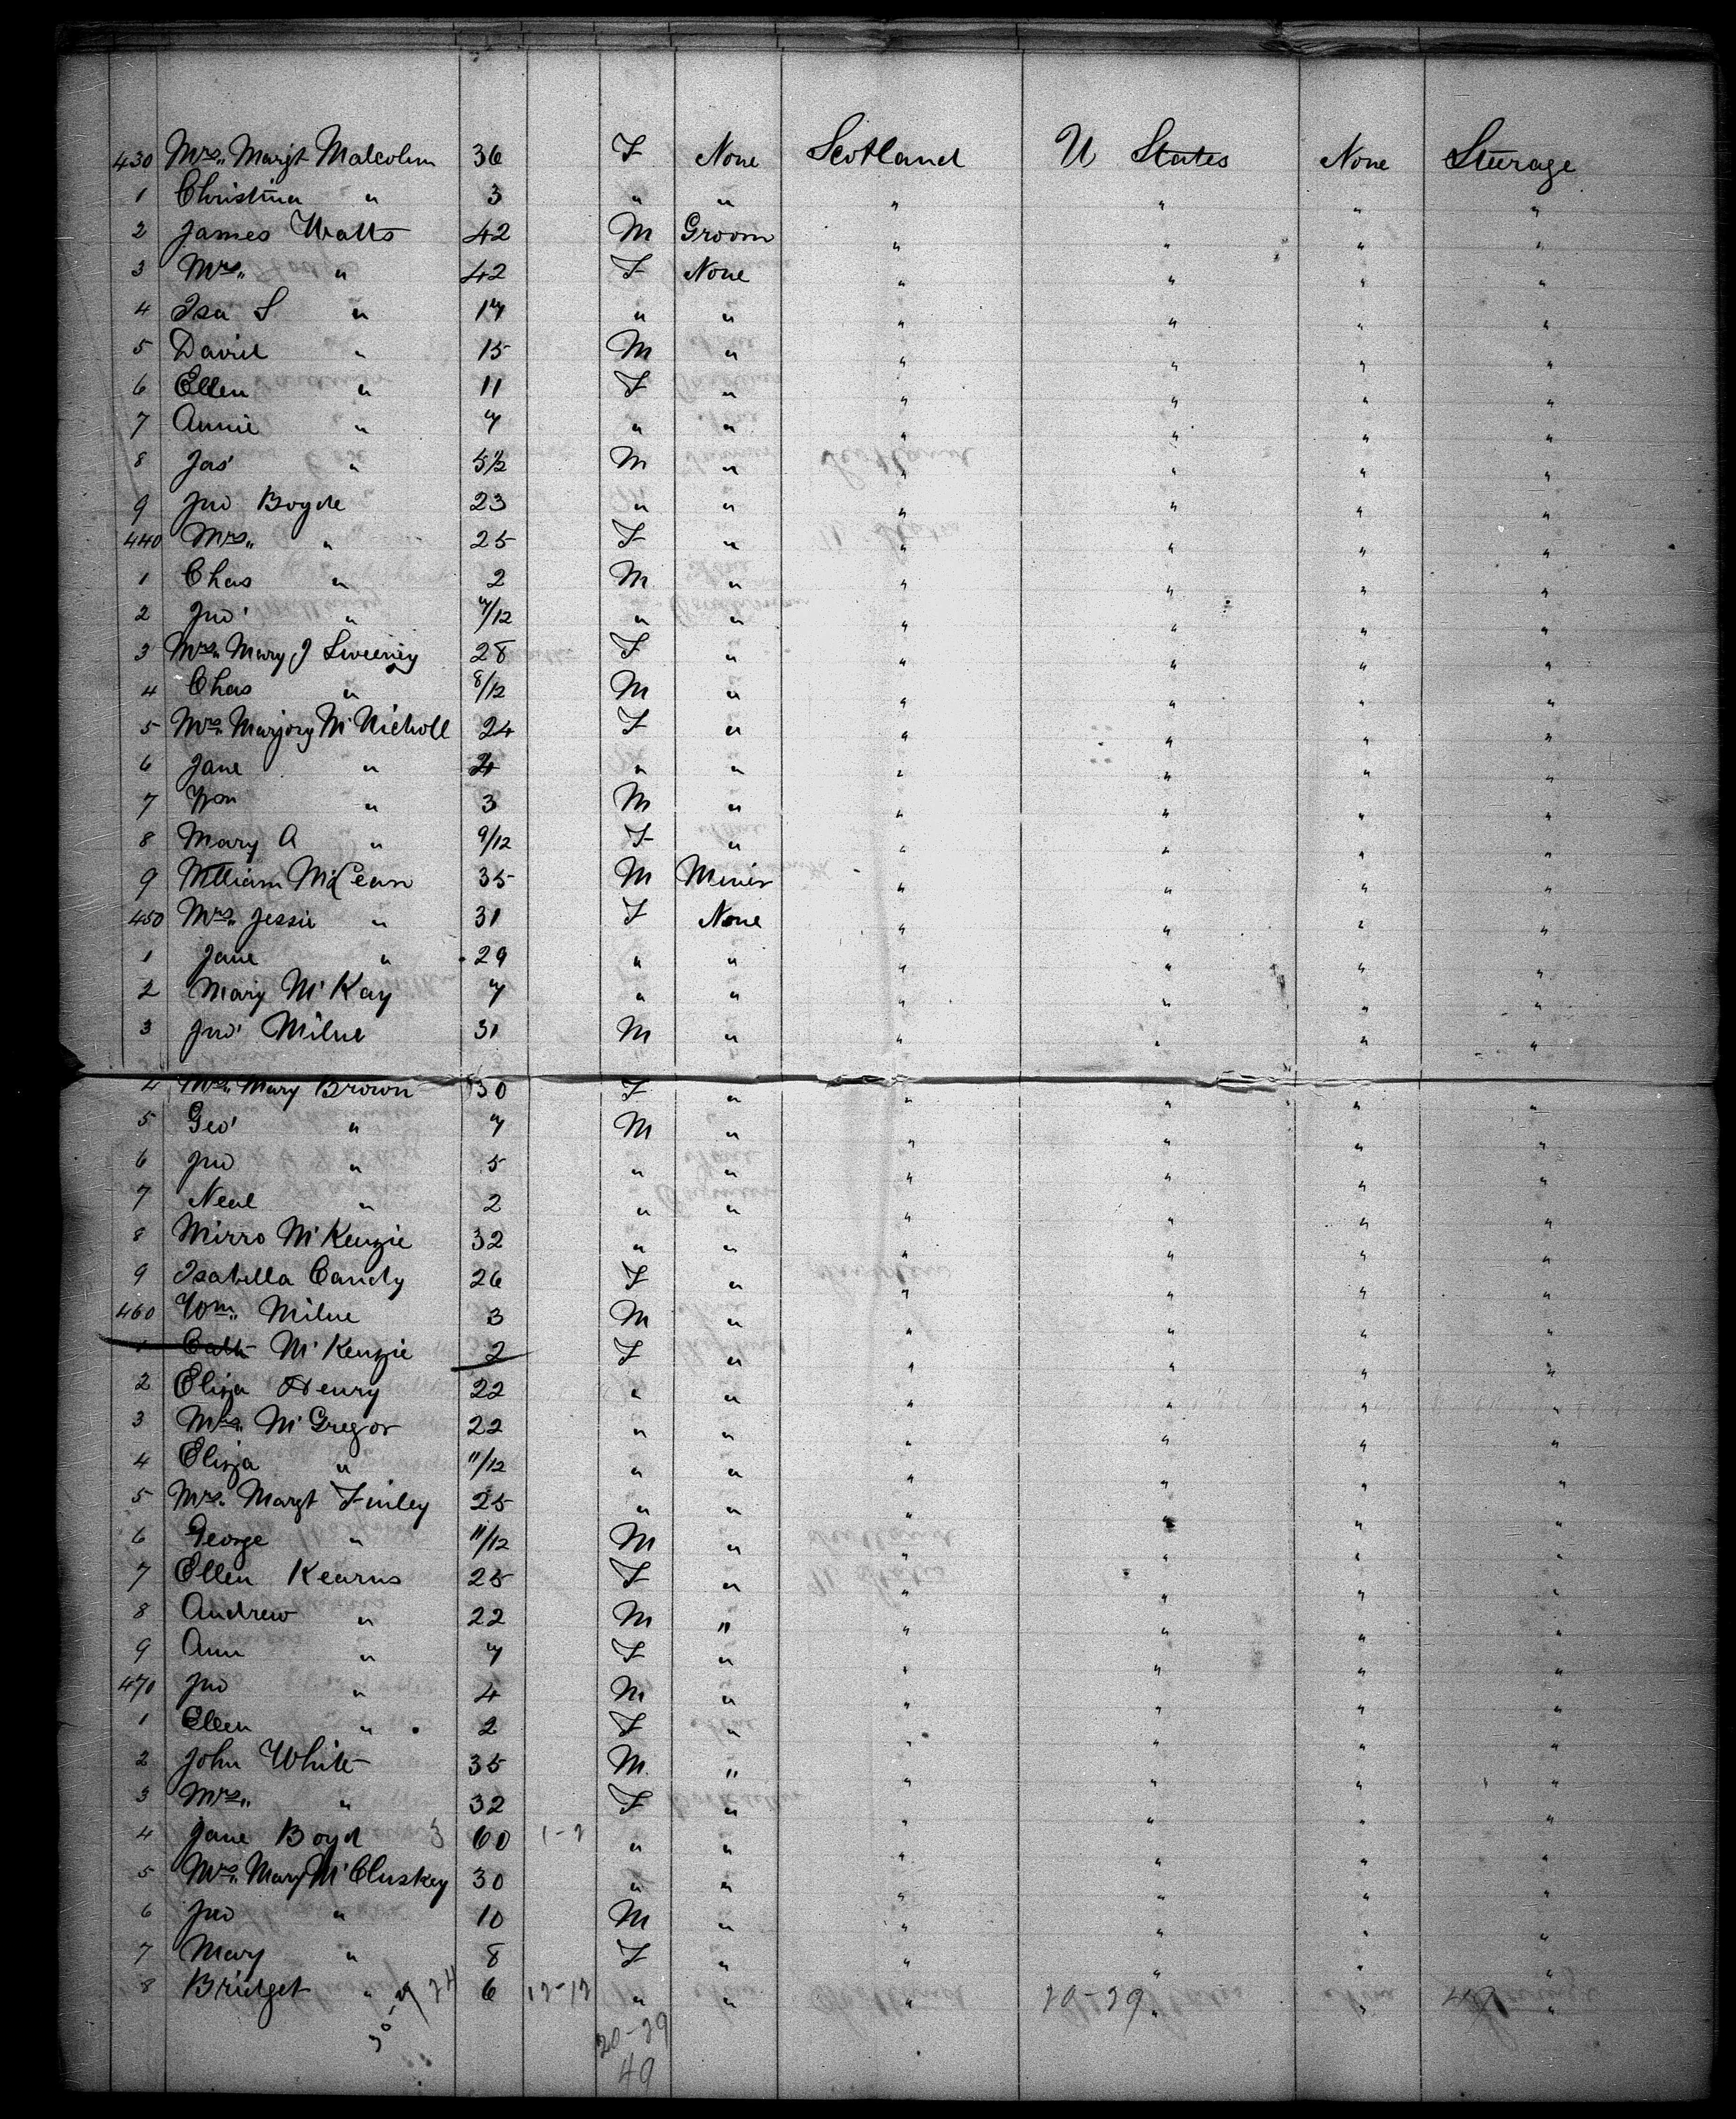 430 Mrs,, Margt Malcolm 36 F None Scotland U States None Steerage
1 Christina " 3 " " " " " "
2 James Watts 42 M Groom " " " "
3 Mrs,, " 42 F None " " " "
4 Isa S " 17 " " " " " "
5 David " 15 M " " " " "
6 Ellen " 11 F " " " " "
7 Annie " 7 " " " " " "
8 Jas' " 5½ M " " " " "
9 Jno Boyde 23 " " " " " "
440 Mrs,, " 25 F " " " " "
1 Chas " 2 M " " " " "
2 Jno' " 7/12 " " " " " "
3 Mrs,, Mary J Sweeney 28 F " " " " "
4 Chas " 8/12 M " " " " "
5 Mrs,, Marjory McNicholl 24 F " " " " "
6 Jane " " " " " " "
7 Wm " 3 M " " " " "
8 Mary A " 9/12 F " " " " "
9 William McCean 35 M Miner " " " "
450 Mrs,, Jessie " 31 F None " " " "
1 Jane " 29 " " " " " "
2 Mary M'Kay 7 " " " " " "
3 Jno' Milne 31 M " " " " "
4 Mrs,, Mary Brown 30 F " " " " "
5 Geo' " 7 M " " " " "
6 Jno " 5 " " " " " "
7 Neal " 2 " " " " " "
8 Mirro M'Kenzie 32 " " " " " "
9 Isabella Candy 26 F " " " " "
460 Wm,, Milne 3 M " " " " "
1 Cath M'Kenzie 2 F " " " " "
2 Eliza Henry 22 " " " " " "
3 Mrs,, M'Gregor 22 " " " " " "
4 Eliza " 11/12 " " " " " "
5 Mrs. Margt Finley 25 " " " " " "
6 George " 11/12 M " " " " "
7 Ellen Kearns 25 F " " " " "
8 Andrew " 22 M " " " " "
9 Ann " 7 F " " " " "
470 Jno " 4 M " " " " "
1 Ellen " 2 F " " " " "
2 John White 35 M. " " " " "
3 Mrs,, " 32 F " " " " "
4 Jane Boyd 3 60 " " " " " "
5 Mrs,, Mary M'Cluskey 30 " " " " " "
6 Jno " 10 M " " " " "
7 Mary " 8 F " " " " "
8 Bridget " 6 " " " " " "
20-29
49